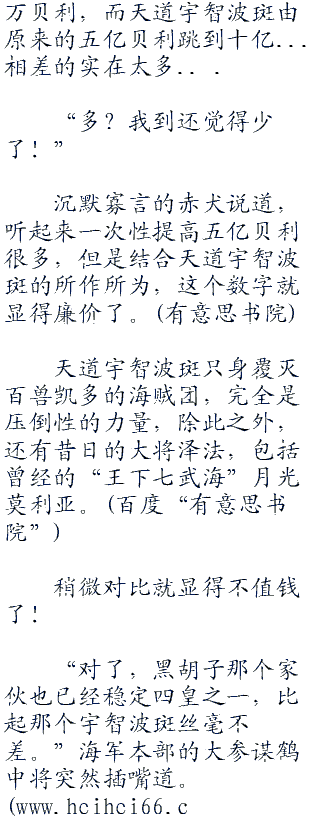 万贝利，而天道宇智波斑由
原来的五亿贝利跳到十亿...
相差的实在太多...
“多？我到还觉得少
了！”
沉默寡言的赤犬说道，
听起来一次性提高五亿贝利
很多，但是结合天道宇智波
斑的所作所为，这个数字就
显得廉价了。(有意思书院)
天道宇智波斑只身覆灭
百兽凯多的海贼团，完全是
压倒性的力量，除此之外，
还有昔日的大将泽法，包括
曾经的“王下七武海”月光
莫利亚。(百度“有意思书
院”)
稍微对比就显得不值钱
了！
“对了，黑胡子那个家
伙也已经稳定四皇之一，比
起那个宇智波斑丝毫不
差。”海军本部的大参谋鹤
中将突然插嘴道。
(www.hcihci66.c